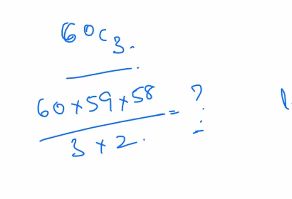 60C3.
60×59×58 = ?
3×2.